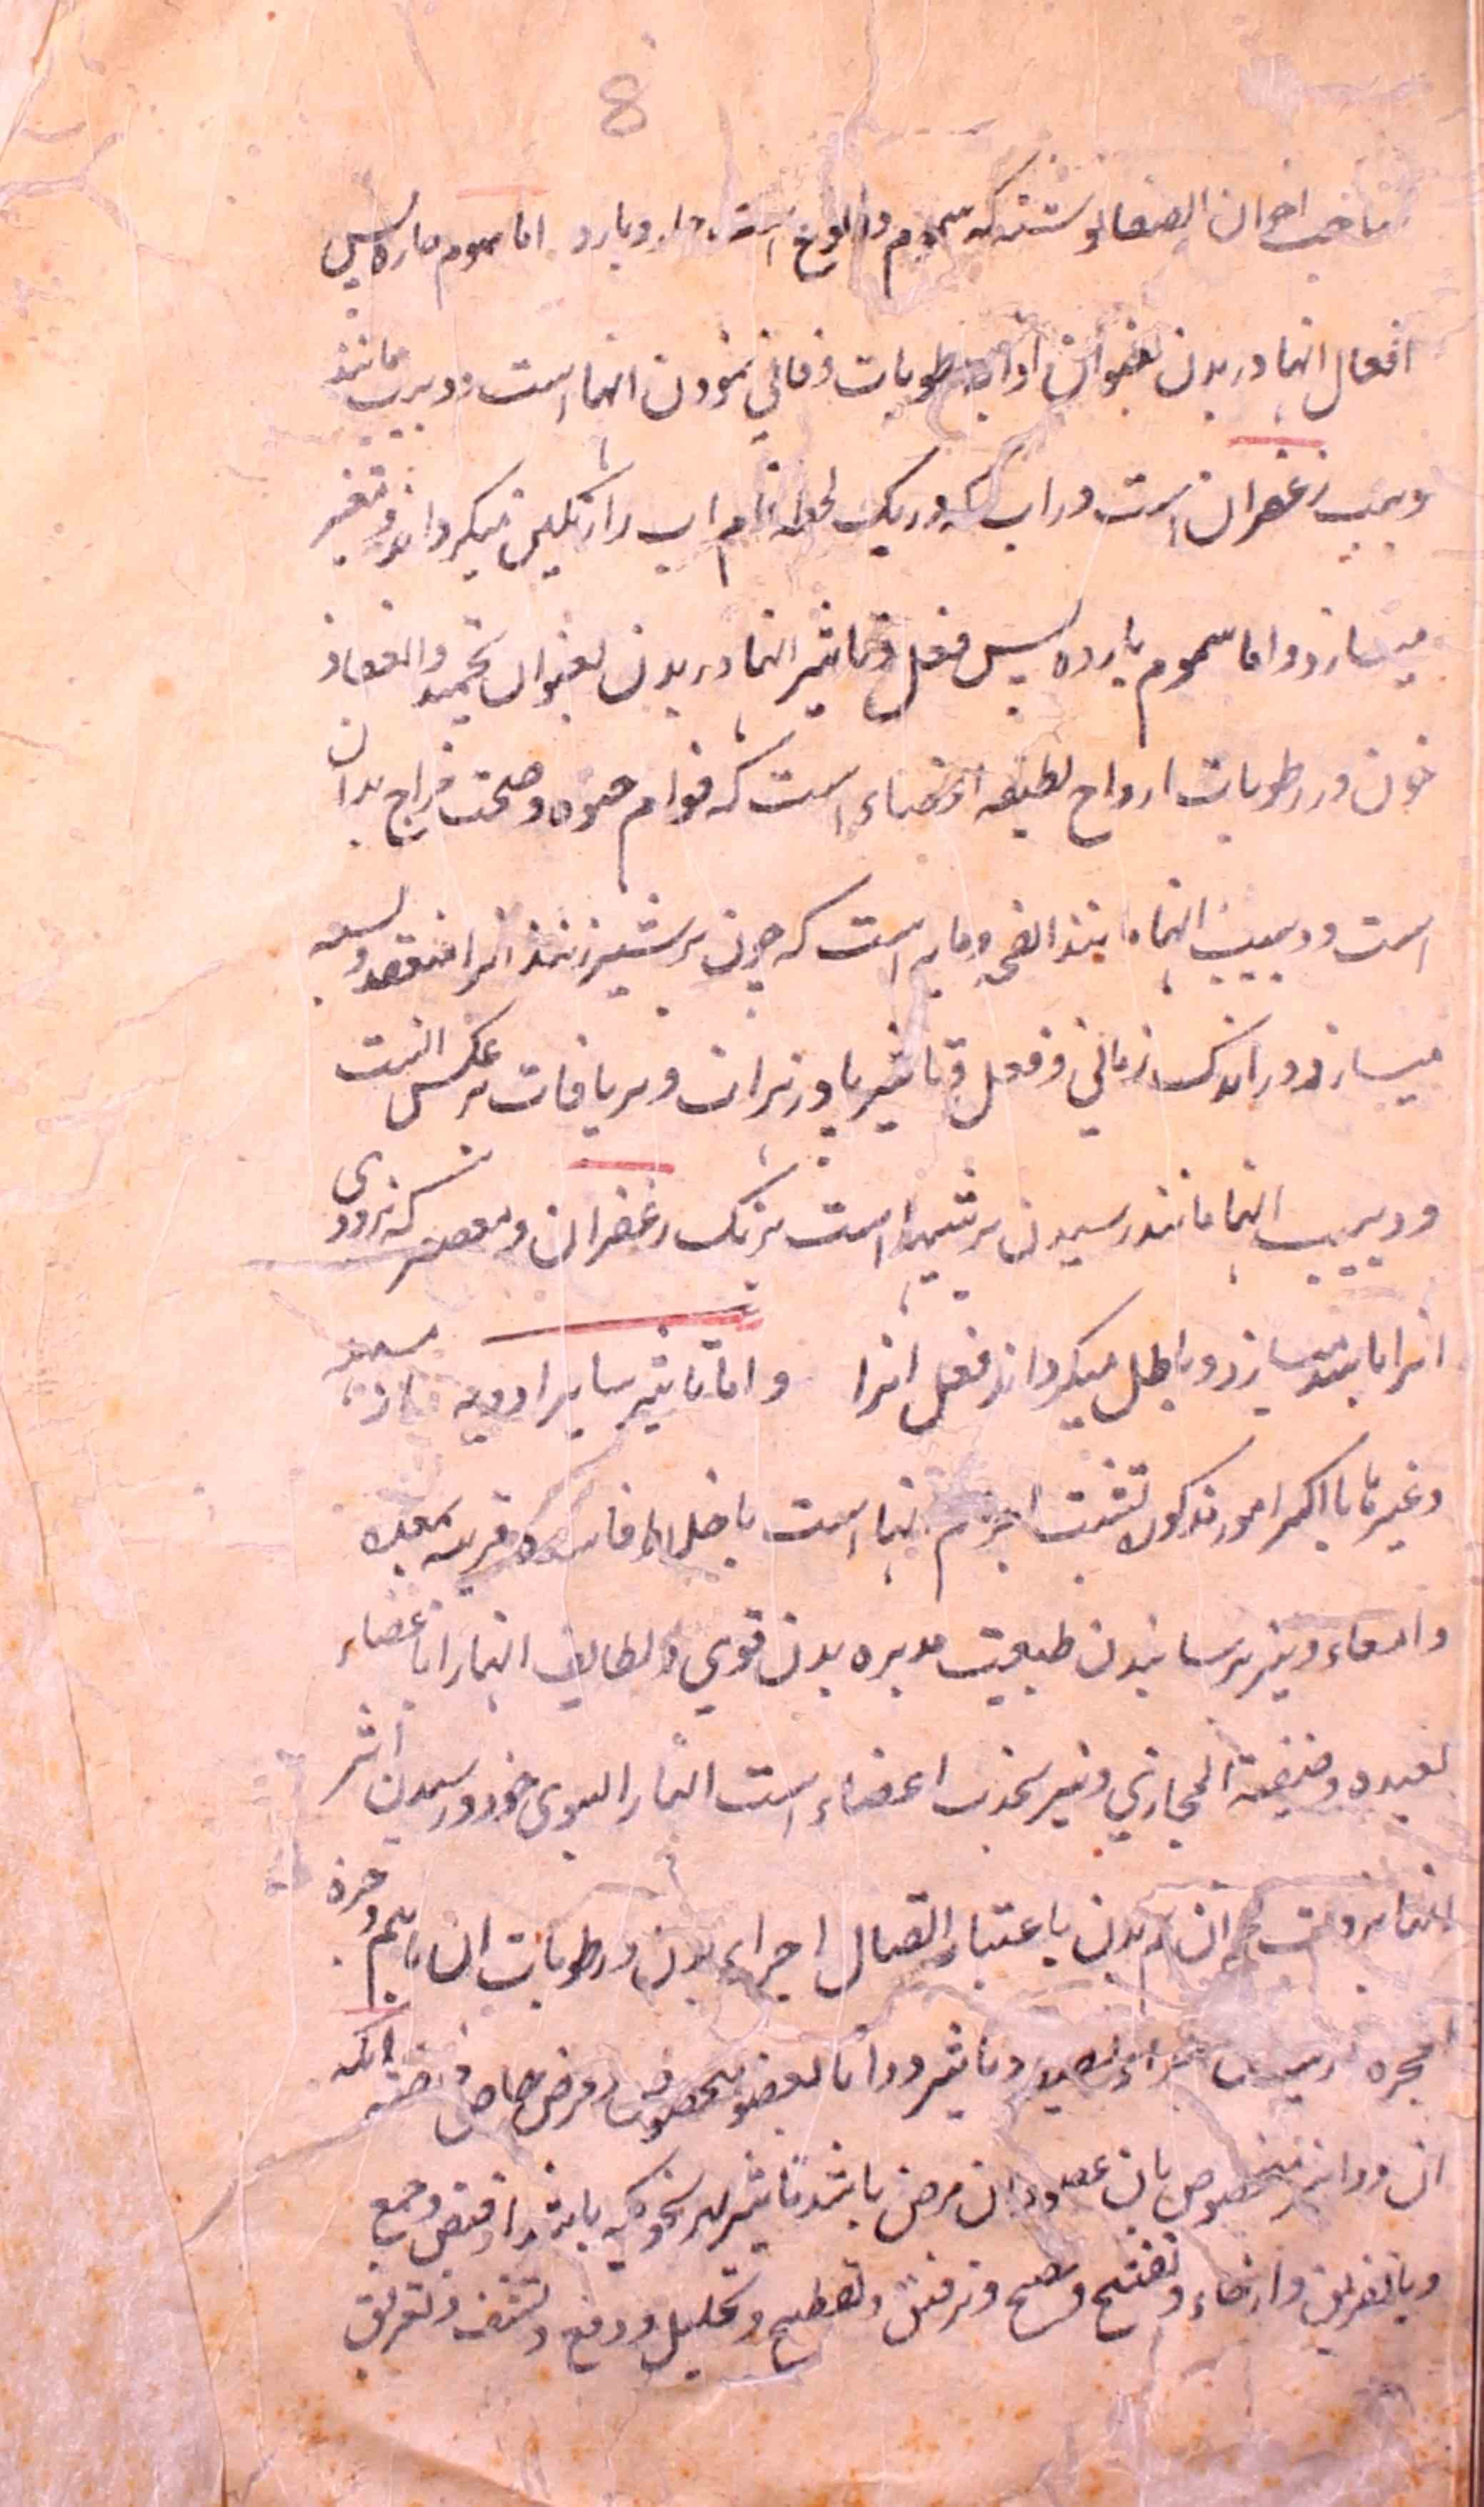 8
صاحب اخوان الصفا نوشته که سموم دو نوع است حار و بارد اما سموم حاره پس
افعال انها در بدن بعنوان اذابه رطوبات و فانی نمودن انها است و دبیب مانند
دبیب زعفران است در اب که در یک لحظه تمام اب را رنکین میکرداند و متغیر
میسازد و اما سموم بارده پس فعل و تاثیر انها در بدن بعنوان تجمید و انعقاد
خون و رطوبات ارواح لطیفه اعضاء است که قوام حیوه و صحت مزاج بدان
است و دبیب انها مانند انفحه و مایه است که چون بر شیر زنند انرا منعقد و بسته
میسازد در اندک زمانی و فعل و تاثیر پادزهران و تریاقات بر عکس انست
و دبیب انها مانند رسیدن ترشیها است برنک زعفران و معصفر که بزودی
انرا میسازد و باطل میکرداند فعل انرا و اما تاثیر سایر ادویه مسهله
و غیرها با اکثر امور مذکوره تشبث اجرام انها است باخلاط فاسده قریبه بمعده
و امعاء و نیز برسانیدن طبیعت مدبره بدن قوی و لطایف انها را باعضاء
بعیده و ضیقة المجاری و نیز بجذب اعضاء است انها را بسوی خود و رسیدن اثر
بدن باعتبار اتصال اجزاء بدن و رطوبات ان باهم و جزء
و تاثیر دوا بالعضو مخصوص و مرض خاص انکه
ان دوا نیز مخصوص بان عضو و ان مرض باشد تاثیر بهر نحویکه باشد از قبض و جمع
و یا تفریق و ارخاء و تفتیح و ترقیق و تقطیع و تحلیل و دفع و نشف و تفریق